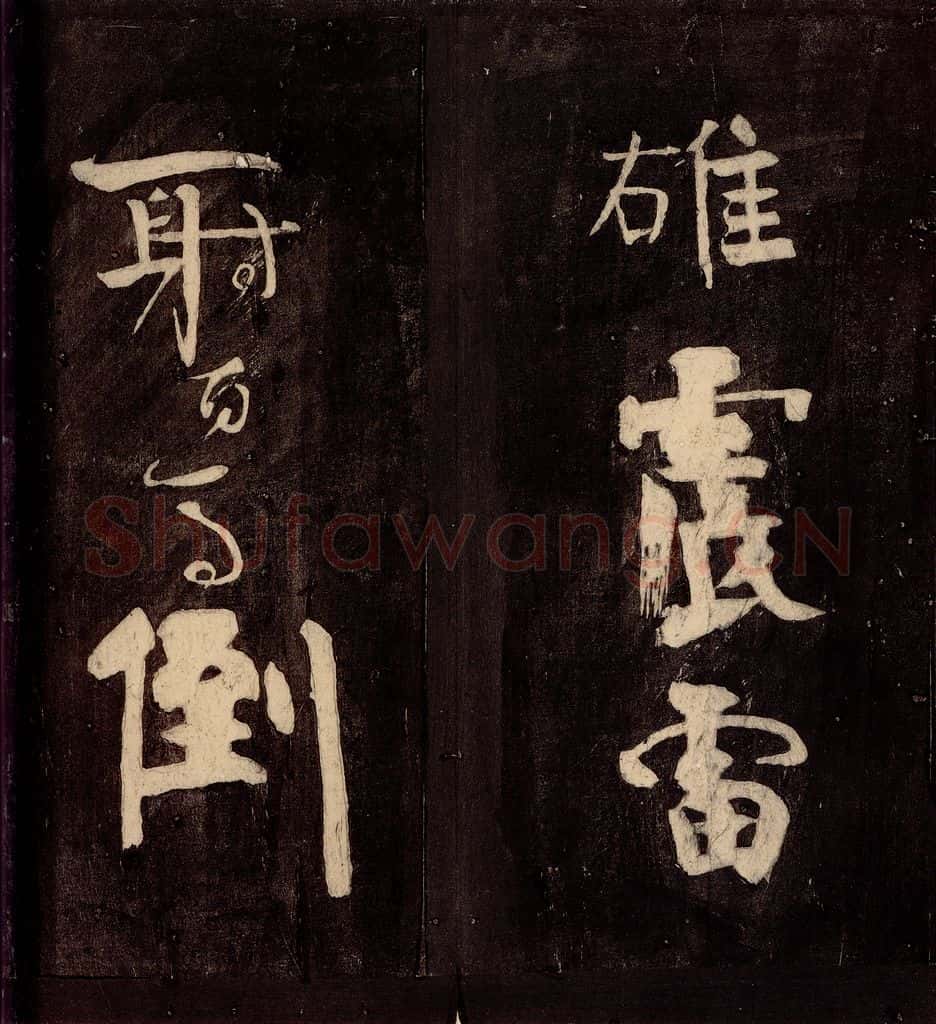 雄震雷
一射百馬倒
Shufawang.CN